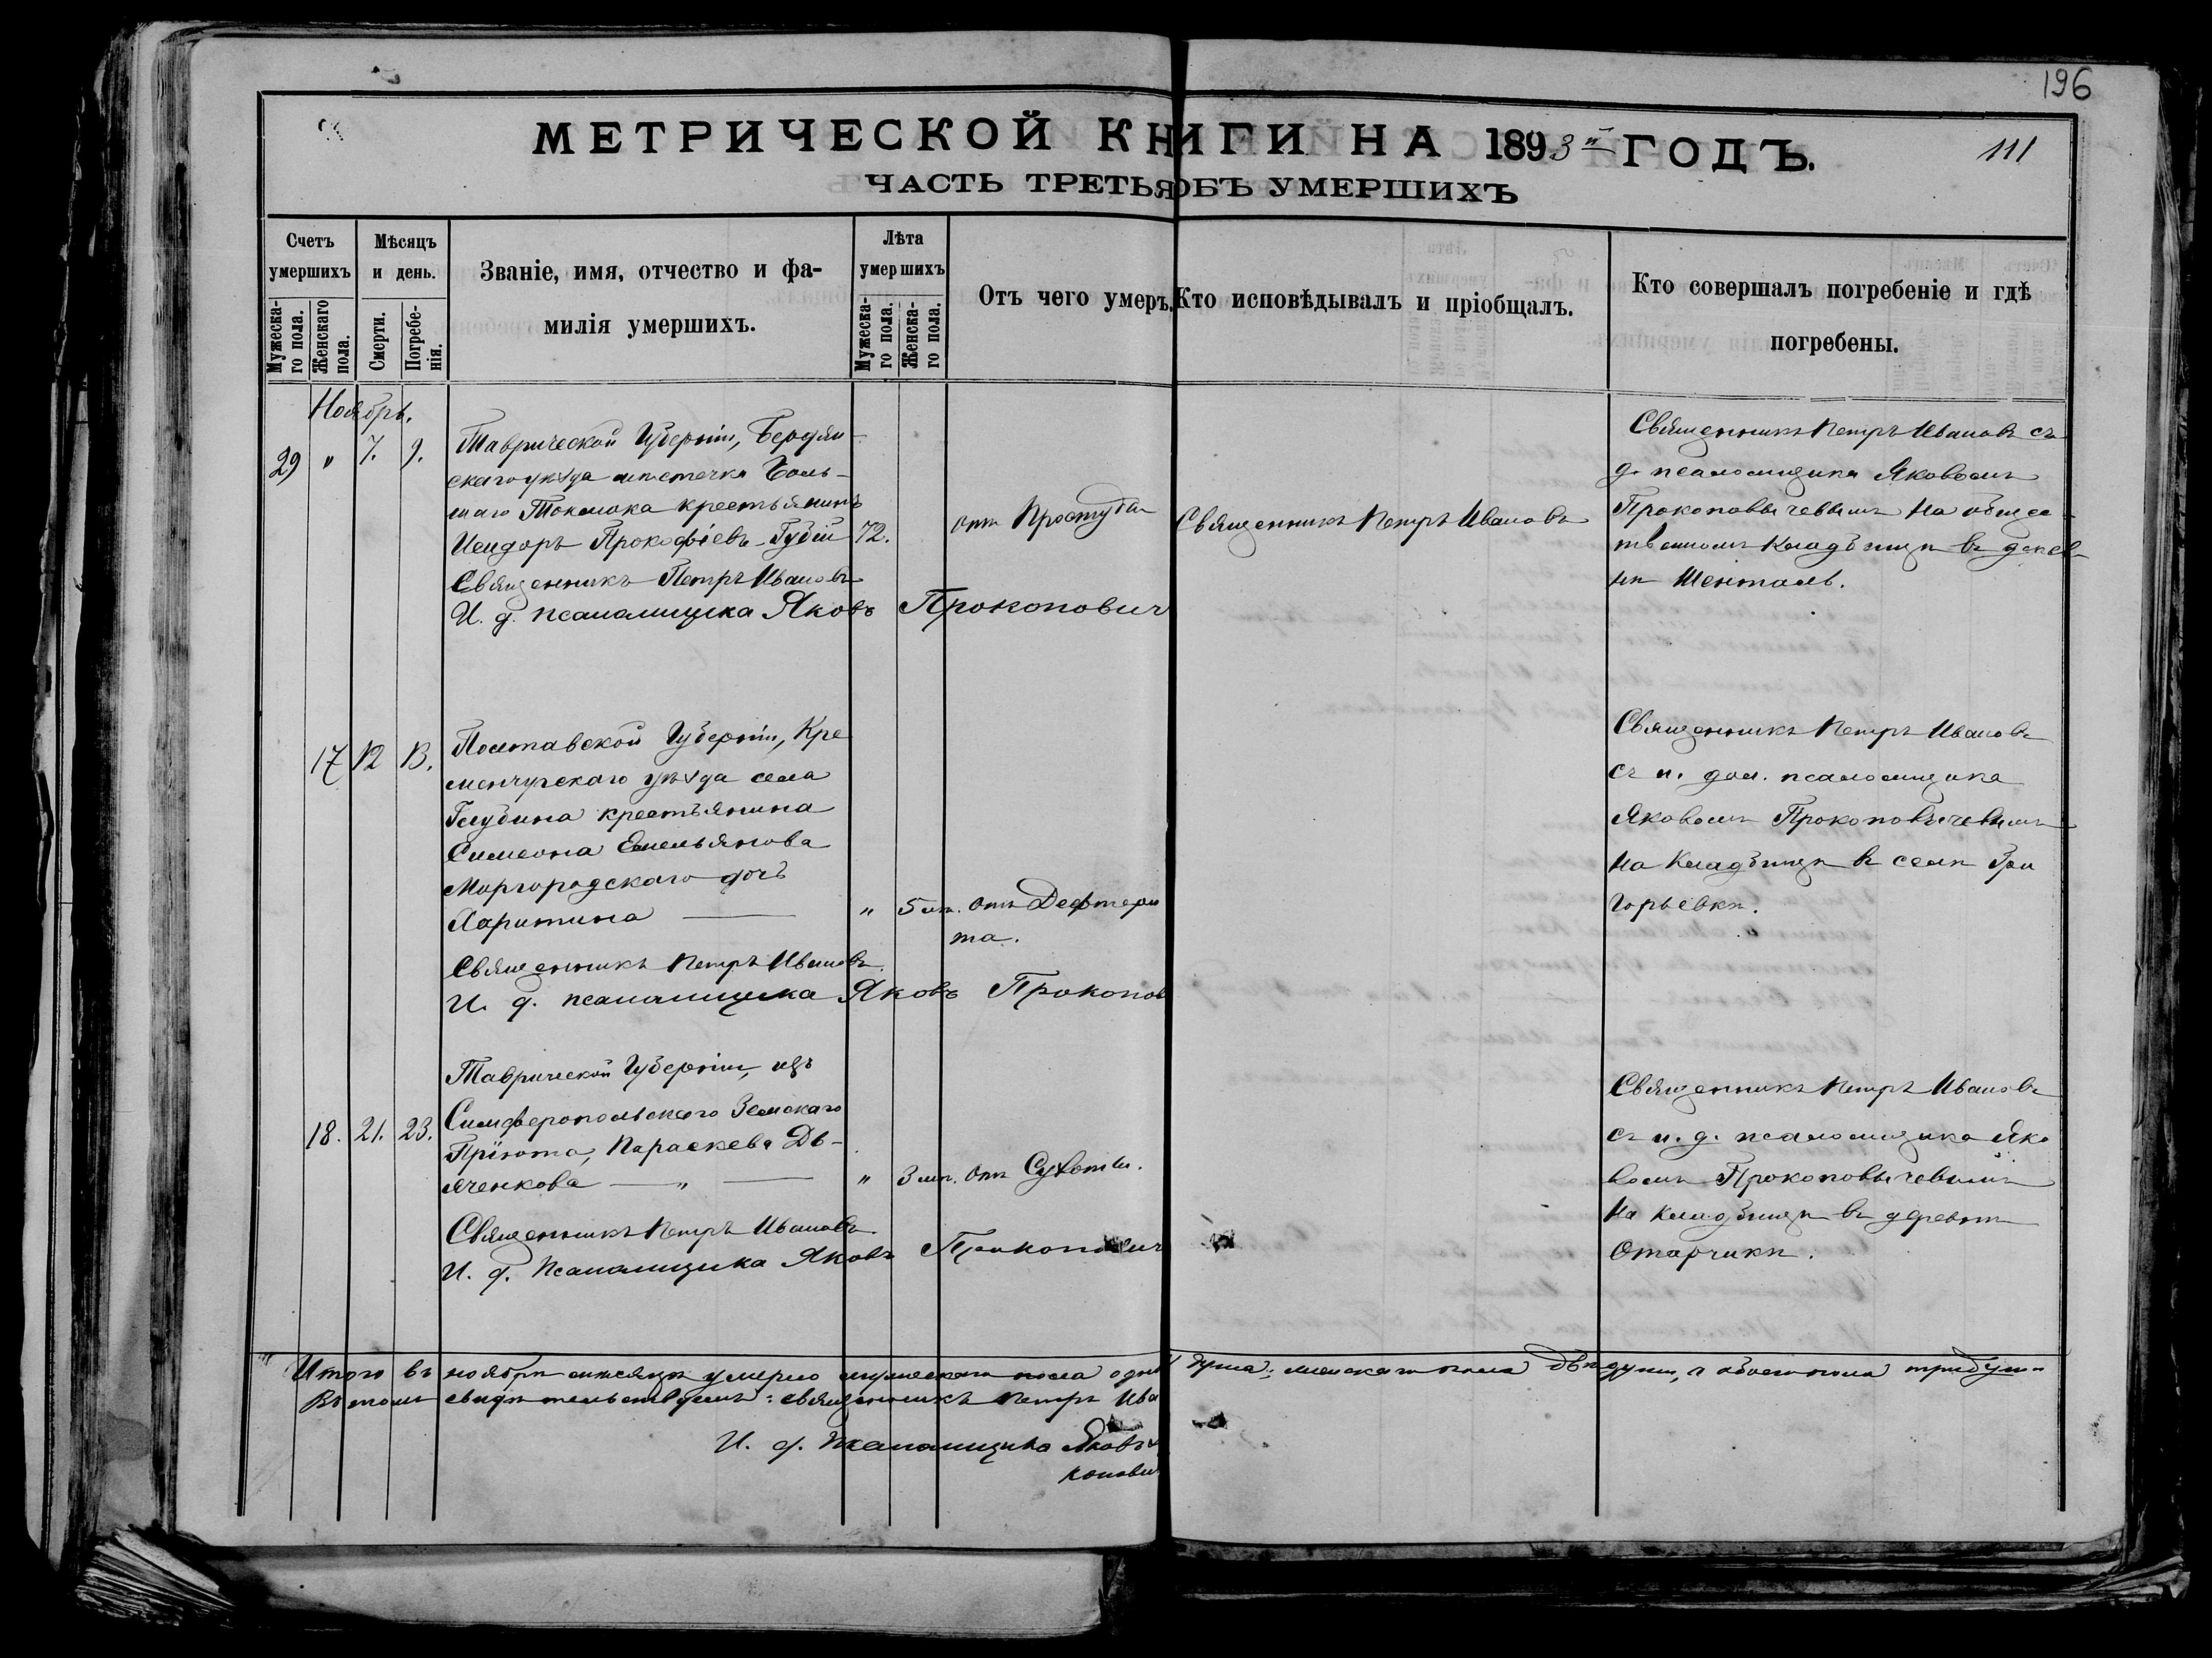 196
МЕТРИЧЕСКОЙ КНИГИ НА 1893й ГОДЪ.
111
ЧАСТЬ ТРЕТЬЯ ОБЪ УМЕРШИХЪ
Счетъ умершихъ
Мужеска-
го пола.
Женскаго
пола.
Мѣсяцъ и день.
Смерти.
Погребе-
нія.
Званіе, имя, отчество и фа-
милія умершихъ.
Лѣта умершихъ
Мужеска-
го пола.
Женска-
го пола.
Отъ чего умеръ.
Кто исповѣдывалъ и пріобщалъ.
Кто совершалъ погребеніе и гдѣ
погребены.
Ноябрь.
29 " 7. 9.
Таврической Губерніи, Бердян-
скаго уѣзда мѣстечка Боль-
шаго Токмака крестьянинъ
Исидоръ Прокофіевъ Губій
72.
отъ Простуды
Священникъ Петръ Ивановъ
Священникъ Петръ Ивановъ
И. д. псаломщика Яковъ Прокопович
Священникъ Петръ Ивановъ съ
д. псаломщика Яковомъ
Прокоповичевымъ на общес-
твенномъ кладбищѣ въ дерев-
нѣ Шенталь.
17 12 13.
Полтавской Губерніи, Кре
менчугскаго уѣзда села
крестьянина
Симеона Емельянова
Моргородскаго дочь
Харитина
" 5 лѣт. отъ Дефтери
та.
Священникъ Петръ Ивановъ
И. д. псаломщика Яковъ Прокопов
Священникъ Петръ Ивановъ
съ и. дол. псаломщика
Яковомъ Прокоповичевымъ
на кладбищѣ въ селѣ Гри
горьевкѣ.
18. 21. 23.
Таврической Губерніи, изъ
Симферопольскаго Земскаго
Пріюта, Параскева Дь-
яченкова "
" 3 мѣс. отъ Сухоты.
Священникъ Петръ Ивановъ
И. д. псаломщика Яковъ Прокопович
Священникъ Петръ Ивановъ
съ и. д. псаломщика Яко
вомъ Прокоповичевымъ
на кладбищѣ въ деревнѣ
Отарчикѣ.
Итого въ ноябрѣ мѣсяцѣ умерло мужескаго пола одна душа; женскаго пола двѣ души, а обоего пола три души
Въ томъ свидѣтельствуемъ: священникъ Петръ Ива
И. д. псаломщика Яковъ
копович